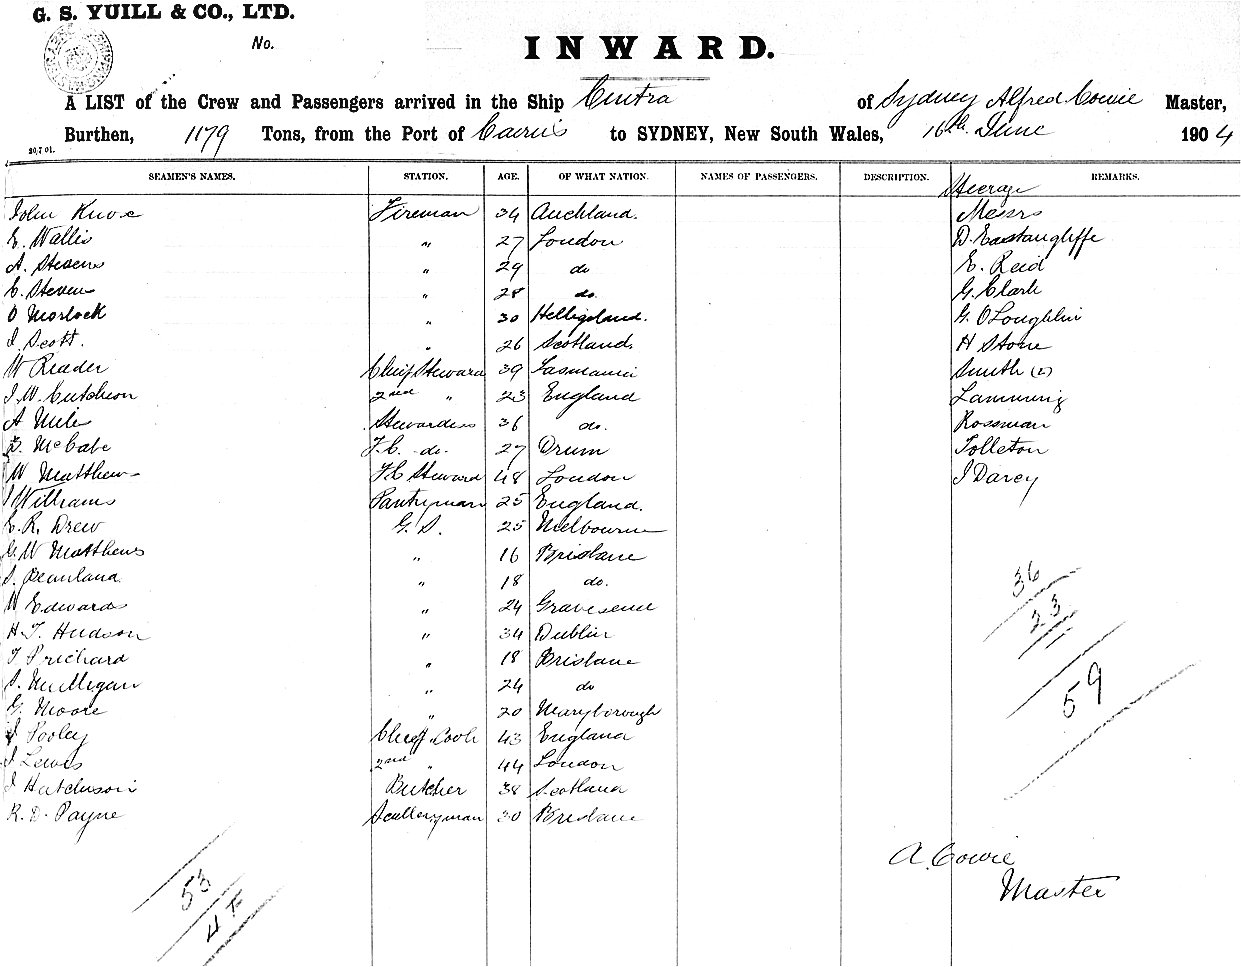 G. S. YUILL & CO., LTD.
No.
INWARD.
A LIST of the Crew and Passengers arrived in the Ship Cintra of Sydney Alfred Cowie Master,
Burthen, 1179 Tons, from the Port of Cairns to SYDNEY, New South Wales, 16th June 1904
20,7 01.
SEAMEN'S NAMES. STATION. AGE. OF WHAT NATION. NAMES OF PASSENGERS. DESCRIPTION. REMARKS.
Steerage
John Knox Fireman 34 Auckland. Messrs
E. Wallis " 27 London D. Eastaugliffe
A. Stevens " 29 do E. Reid
C. Stevens " 28 do. G. Clark
O Morlock " 30 Helligoland. G. O'Loughlin
J. Scott. " 26 Scotland. H Stone
W Reader Chief Steward 39 Tasmania Smith (2)
J. W. Cutcheon 2nd " 23 England Lamming
A Mile Stewardess 36 do. Rossman
McCabe F.C. do. 27 Drum Tolleton
W Matthews F.C Steward 48 London J Darcy
J Williams Pantryman 25 England.
E. R. Drew G. S. 25 Melbourne
G. W Matthews " 16 Brisbane
S. Beauland " 18 do.
W Edwards " 24 Gravesend
H. T. Hudson " 34 Dublin
T Prichard " 18 Brisbane
S. Mulligan " 24 do
G. Moore " 20 Maryborough
J Pooley Chief Cook 43 England
J Lewis 2nd " 44 London
J Hutchison Butcher 38 Scotland
R. D. Payne Scullery man 30 Brisbane
36
23
59
A. Cowie
Master
53